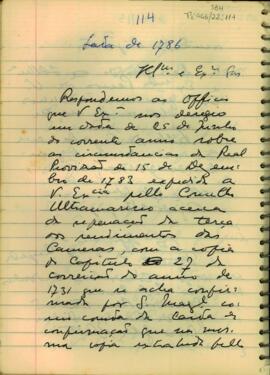 114
114
Carta de 1786
Illmo e Exmo Snr
Respondemos ao Officio
que V. Exa nos dirigio
em data de 25 de Junho
do corrente anno sobre
as circumstancias da Real
Provisão de 15 de Dezem
bro de 1783 expedida
V. Excia pello Conselho
Ultramarino acerca
da reparação da terça
dos rendimentos das
Cameras, com a copia
do Capitulo 27 da
correição do anno de
1731 que se acha confir
mada por S. Magde co
mo consta da Carta de
confirmação que na mes
ma via extrahida pello